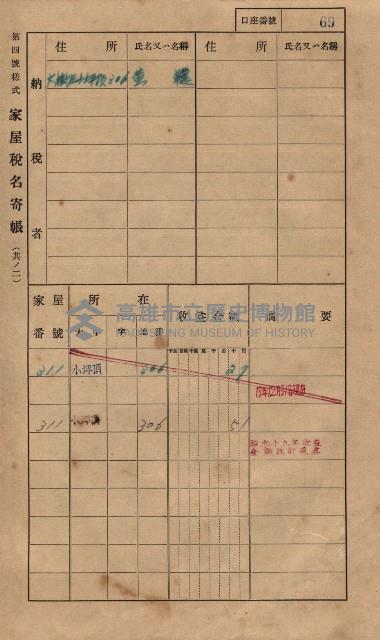 口座番號 69
第四號樣式 家屋稅名寄帳 (其ノ二)
納稅者
住所 氏名又ハ名稱 住所 氏名又ハ名稱
306 黃
家屋番號 所在 收益金額 摘要
大字 字 地番
高雄市立歷史博物館
KAOHSIUNG MUSEUM OF HISTORY
311 小坪頂 306 37
311 小坪頂 306 51
昭和十九年收益